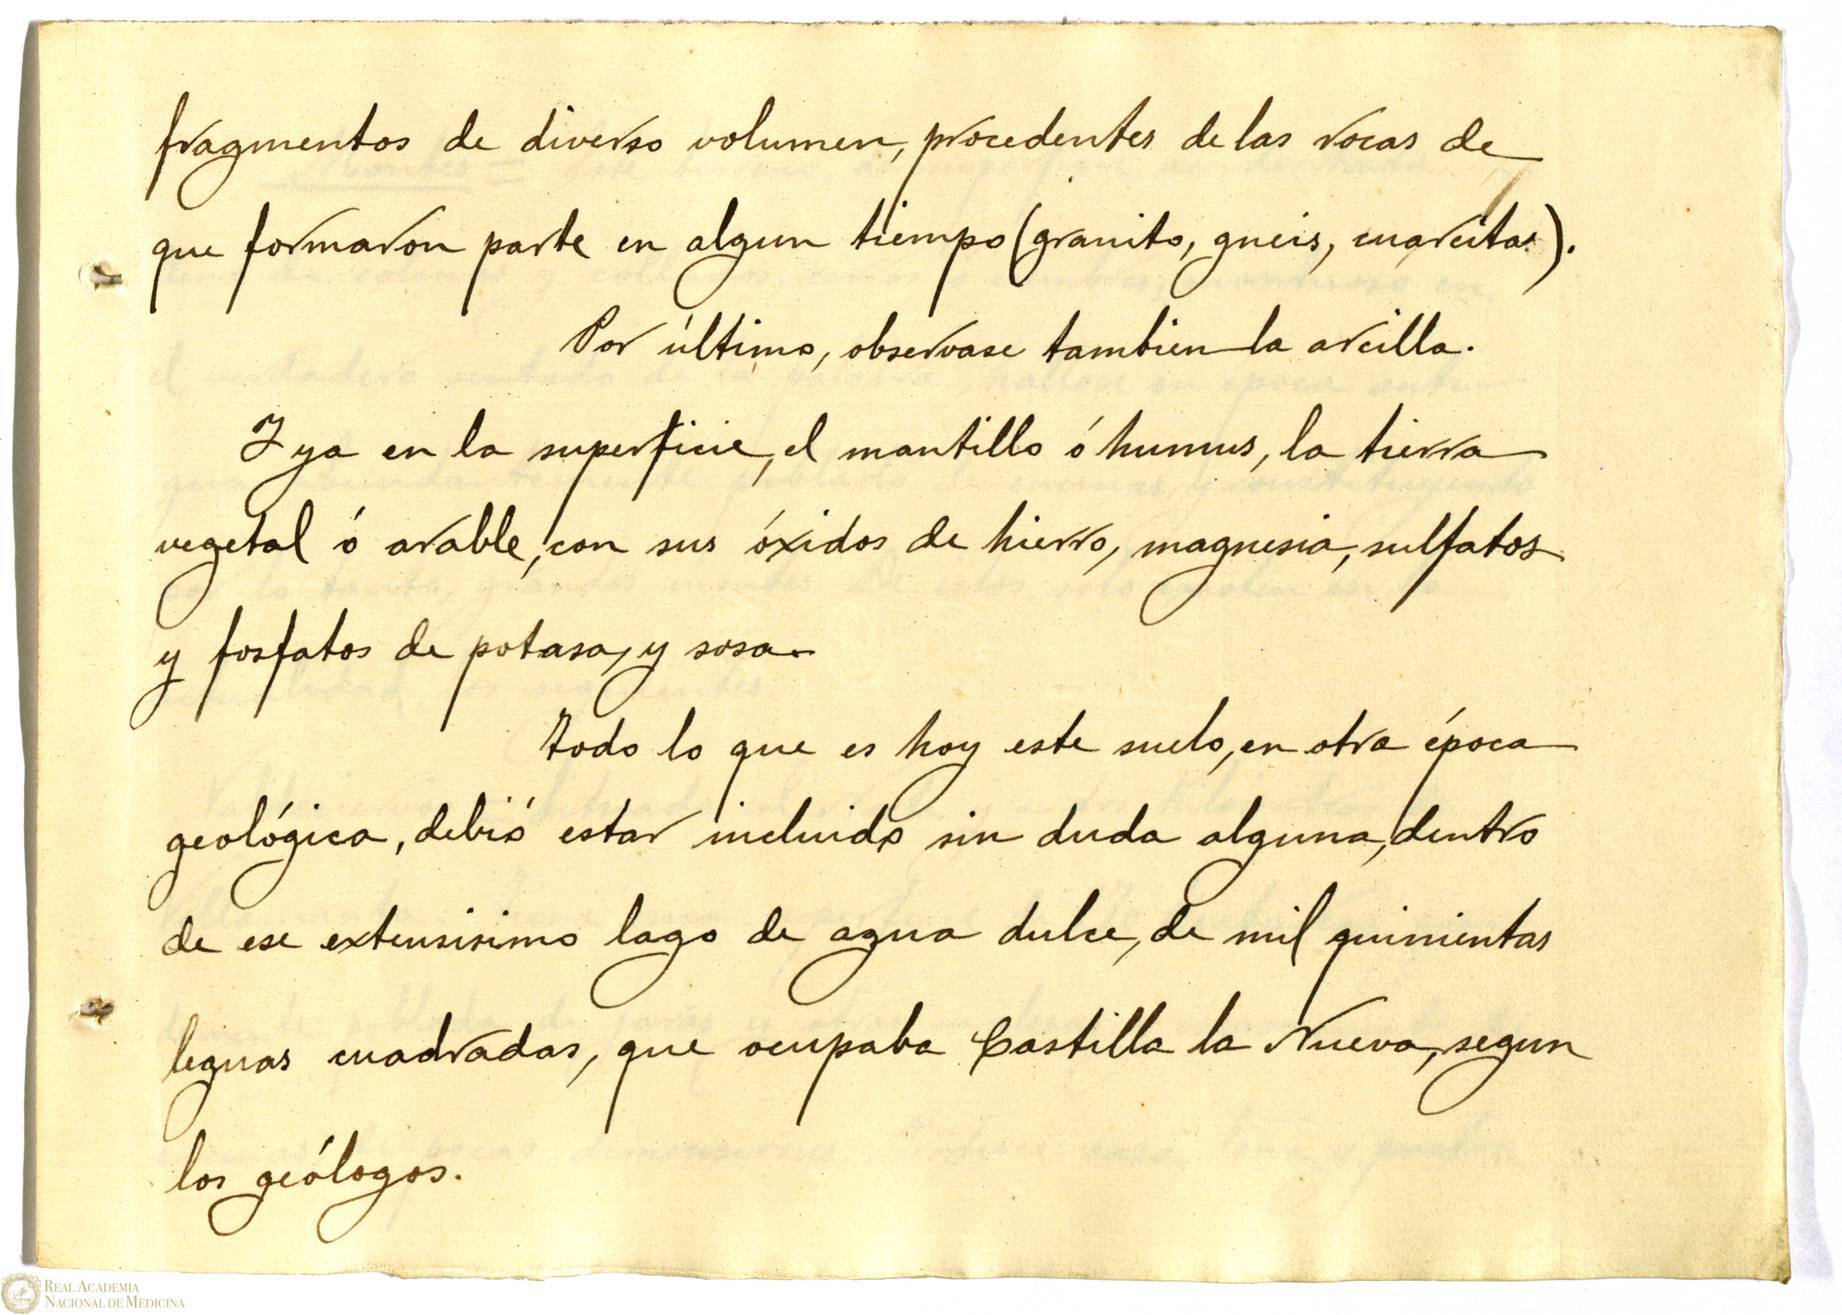 fragmentos de diverso volumen, procedentes de las rocas de
que formaron parte en algun tiempo (granito, gneis, cuarcitas).
Por último, observase tambien la arcilla.
Y ya en la superficie, el mantillo ó humus, la tierra
vegetal ó arable, con sus óxidos de hierro, magnesia, sulfatos
y fosfatos de potasa, y sosa.
Todo lo que es hoy este suelo, en otra época
geológica, debió estar incluido sin duda alguna, dentro
de ese extensisimo lago de agua dulce, de mil quinientas
leguas cuadradas, que ocupaba Castilla la Nueva, segun
los geólogos.
REAL ACADEMIA
NACIONAL DE MEDICINA